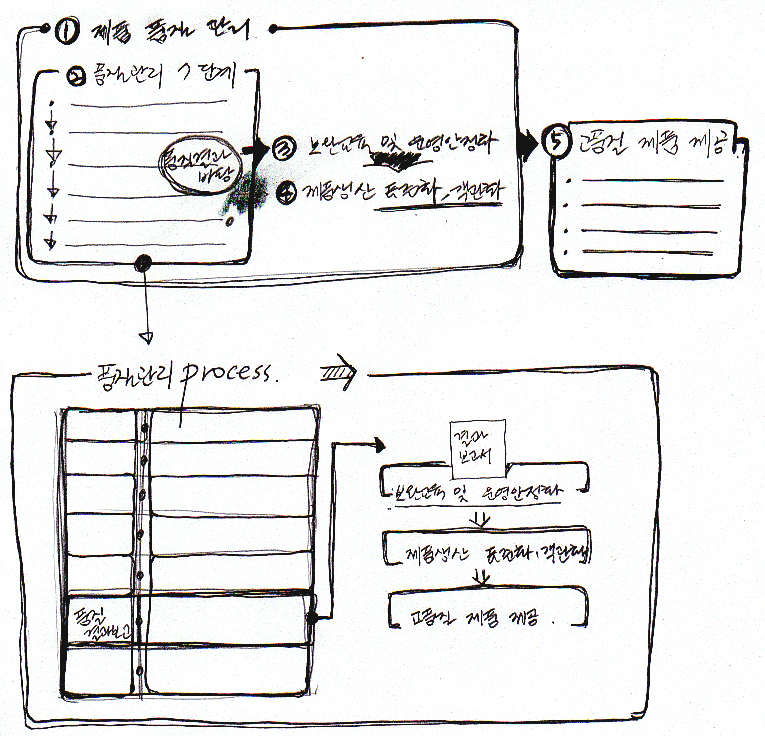 ① 제품 품질 관리
② 품질관리 7 단계
품질결과
바탕
③ 보완교육 및 운영안정화
④ 제품생산 표준화, 객관화
⑤ 고품질 제품 제공
품질관리 process.
결과
보고서
보완교육 및 운영안정화
제품생산 표준화, 객관화
고품질 제품 제공.
품질
결과보고